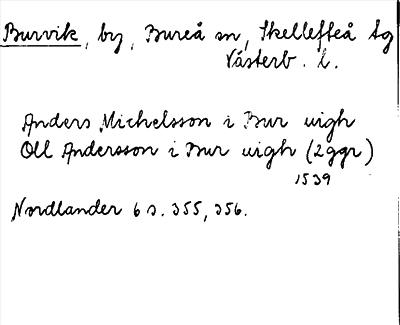 Burvik, by, Bureå sn, Skellefteå tg
Västerb. l.
Anders Michelsson i Bur uigh
Oll Andersson i Bur uigh (2ggr)
1539
Nordlander 6 s. 355, 356.